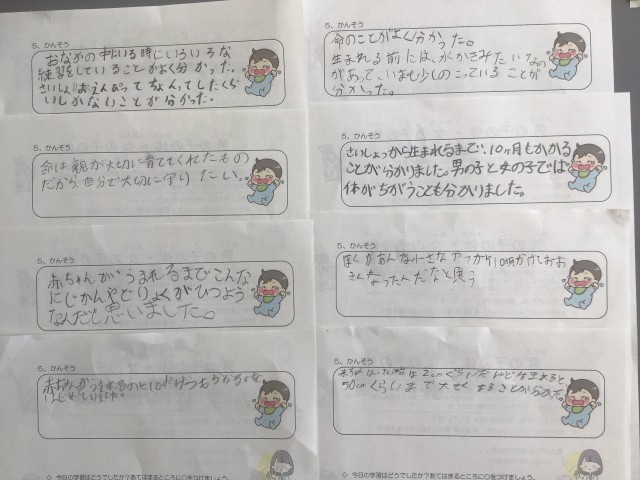 5、かんそう
おなかの中にいる時にいろいろな
練習をしていることがよく分かった。
さいしょはえんぴつでちょんってしたくら
いしかないことが分かった。
5、かんそう
命は、親が大切に育ててくれたもの
だから、自分で大切に守りたい。
5、かんそう
赤ちゃんが、うまれるまでこんな
にじかんやどりょくがひつよう
なんだと思いました。
5、かんそう
赤ちゃんがうまれるのに10か月つもかかる
◇ 今日の学習はどうでしたか？あてはまるところに○をつけましょう。
5、かんそう
命のことがよく分かった。
生まれる前には、水かきみたいなもの
があって、いまも少しのこっていることが
分かった。
5、かんそう
さいしょっから生まれるまで、10ヶ月もかかる
ことが分かりました。男の子と女の子では
体がちがうことも分かりました。
5、かんそう
ぼくがあんな小さなやつから10か月かけておお
きくなったんだなと思う
5、かんそう
赤ちゃんはさいしょは2cmぐらいだけど生まれると
50cmくらいまで大きくなることが分かった。
◇ 今日の学習はどうでしたか？あてはまるところに○をつけましょう。